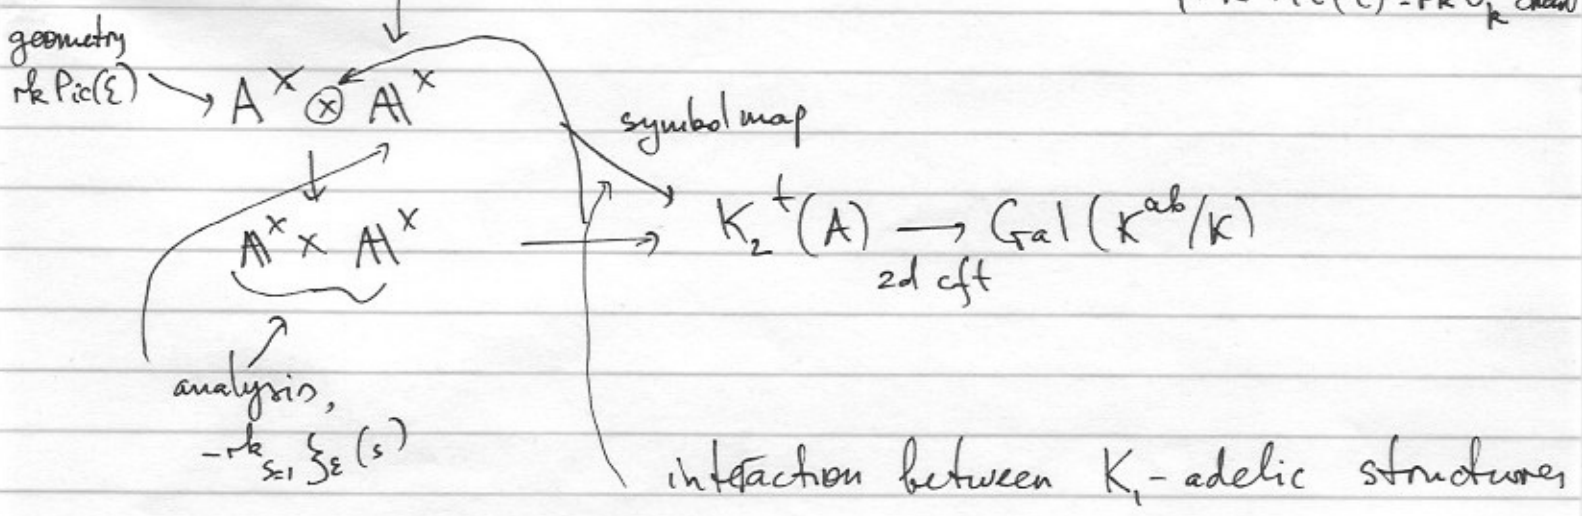 geometry
rk Pic(ℰ)
A^× ⊗ 𝔸^×
symbol map
𝔸^× × 𝔸^×
K_2^t(A) → Gal(K^ab/K)
2d cft
analysis,
-rk_{s=1} ζ_ℰ(s)
interaction between K_1-adelic structures